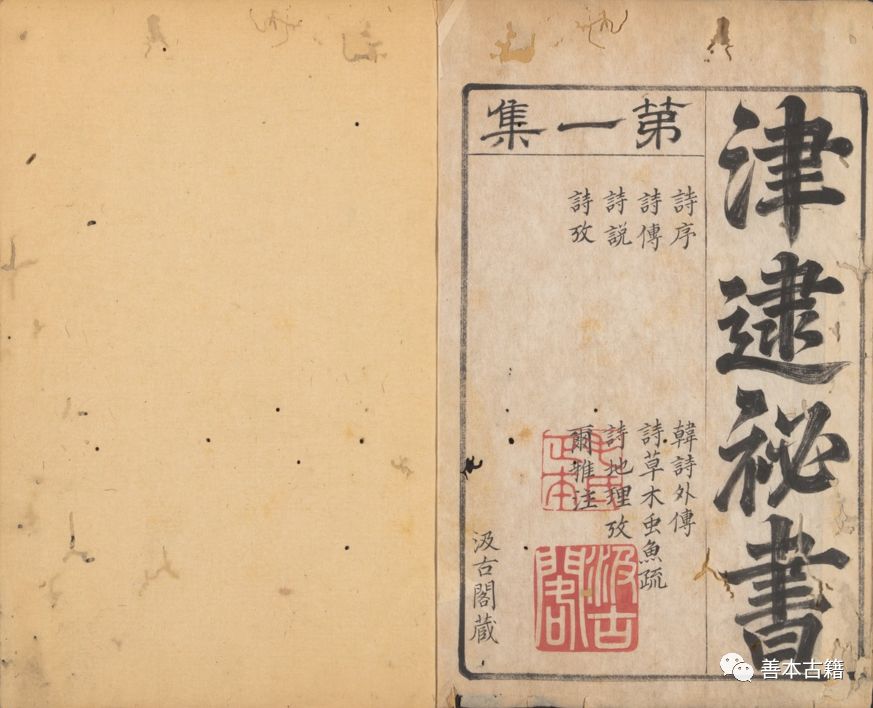 津逮祕書
苐一集
詩序
詩傳
詩説
詩攷
韓詩外傳
詩草木虫魚疏
詩地理攷
爾雅注
汲古閣藏
毛氏正本
汲古閣
善本古籍